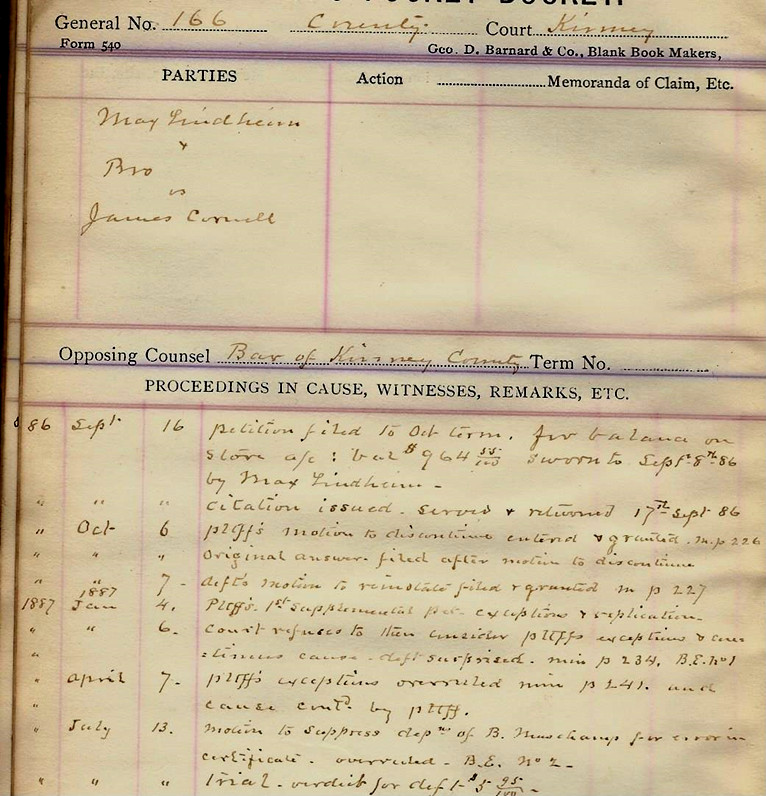 POCKET DOCKET.
General No. 166 County. Court Kinney
Form 540 Geo. D. Barnard & Co., Blank Book Makers,
PARTIES Action Memoranda of Claim, Etc.
Max Lindheim
&
Bro
vs
James Cornell
Opposing Counsel Bar of Kinney County Term No.
PROCEEDINGS IN CAUSE, WITNESSES, REMARKS, ETC.
86 Sept 16 petition filed to Oct term. for balance on
store a/c : bal $964 55/100 sworn to Sept 8th 86
by Max Lindheim -
" " " citation issued. served & returned 17th Sept 86
" Oct 6 pltff's motion to discontinue entered & granted. m. p 226
" " " Original answer filed after motion to discontinue
" " 7 - deft's motion to reinstate filed & granted m p 227
1887
1887 Jan 4. Pltff's 1st Supplemental pet. exceptions & replication.
" " 6. Court refuses to then consider pltffs exceptions & con
" :tinues cause - deft surprised. min p 234. B.E. No 1
" April 7 - pltff's exceptions overruled min p 241. and
" cause contd by pltff.
" July 13. motion to suppress depns of B. Muschamp for error in
certificate. overruled - B.E. No 2 -
" " " Trial - verdict for deft $5 95/100 -